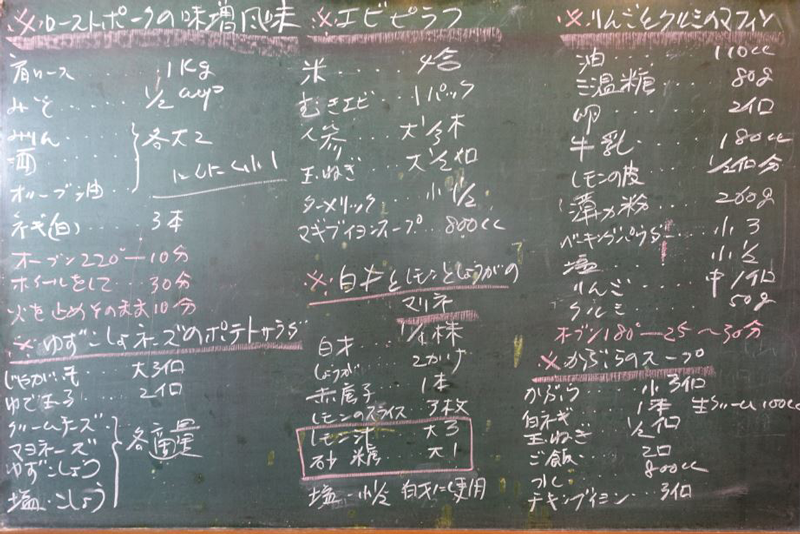 ※ローストポークの味増風味
肩ロース 1Kg
みそ 1/2 cup
みりん
酒
各大2
にんにく小1
オリーブ油
ネギ(白) 3本
オーブン220°ー10分
ホイルをして 30分
火を止めそのまま10分
※ゆずこしょネーズのポテトサラダ
じゃがいも 大3個
ゆで玉子 2個
クリームチーズ
マヨネーズ
ゆずこしょう
塩・こしょう
各適量
※エビピラフ
米 4合
むきエビ 1パック
人参 大1/2本
玉ねぎ 大1/2個
ターメリック 小1/2
マギブイヨンスープ 800cc
※白才とレモンとしょうがの
マリネ
白才 1/4株
しょうが 2かけ
赤唐子 1本
レモンのスライス 3枚
レモン汁 大3
砂糖 大1
塩・小1/2 白才に使用
※りんごとクルミのマフィン
油 110cc
三温糖 80g
卵 2個
牛乳 180cc
レモンの皮 1/2個分
薄力粉 260g
ベーキングパウダー 小3
塩 小1/2
りんご 中1個
クルミ 50g
オブン180°ー25〜30分
※かぶらのスープ
かぶら 小3個
白ネギ 1本 生クリーム100cc
玉ねぎ 1/2個
ご飯 2口
水 800cc
チキンブイヨン 3個